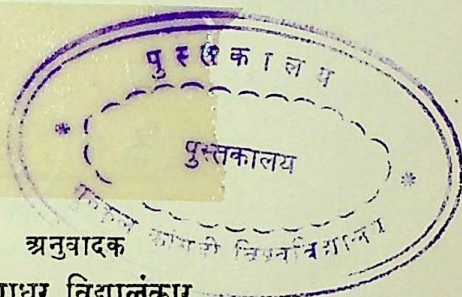 पुस्तकालय
पुस्तकालय
गुरुकुल कांगड़ी विश्वविद्यालय
अनुवादक
विद्यालंकार